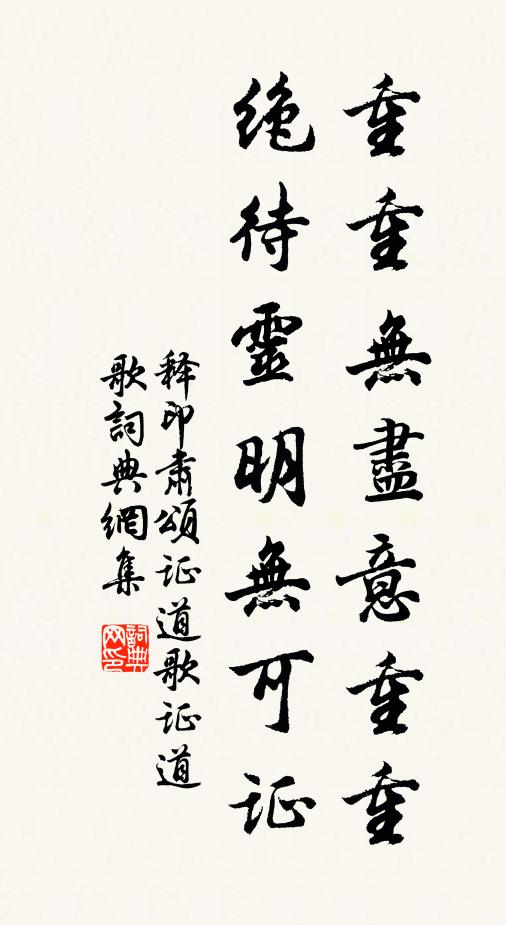 重重無盡意重重
绝待靈明無可证
释印肃颂证道歌证道
歌詞典網集
詞典
网印